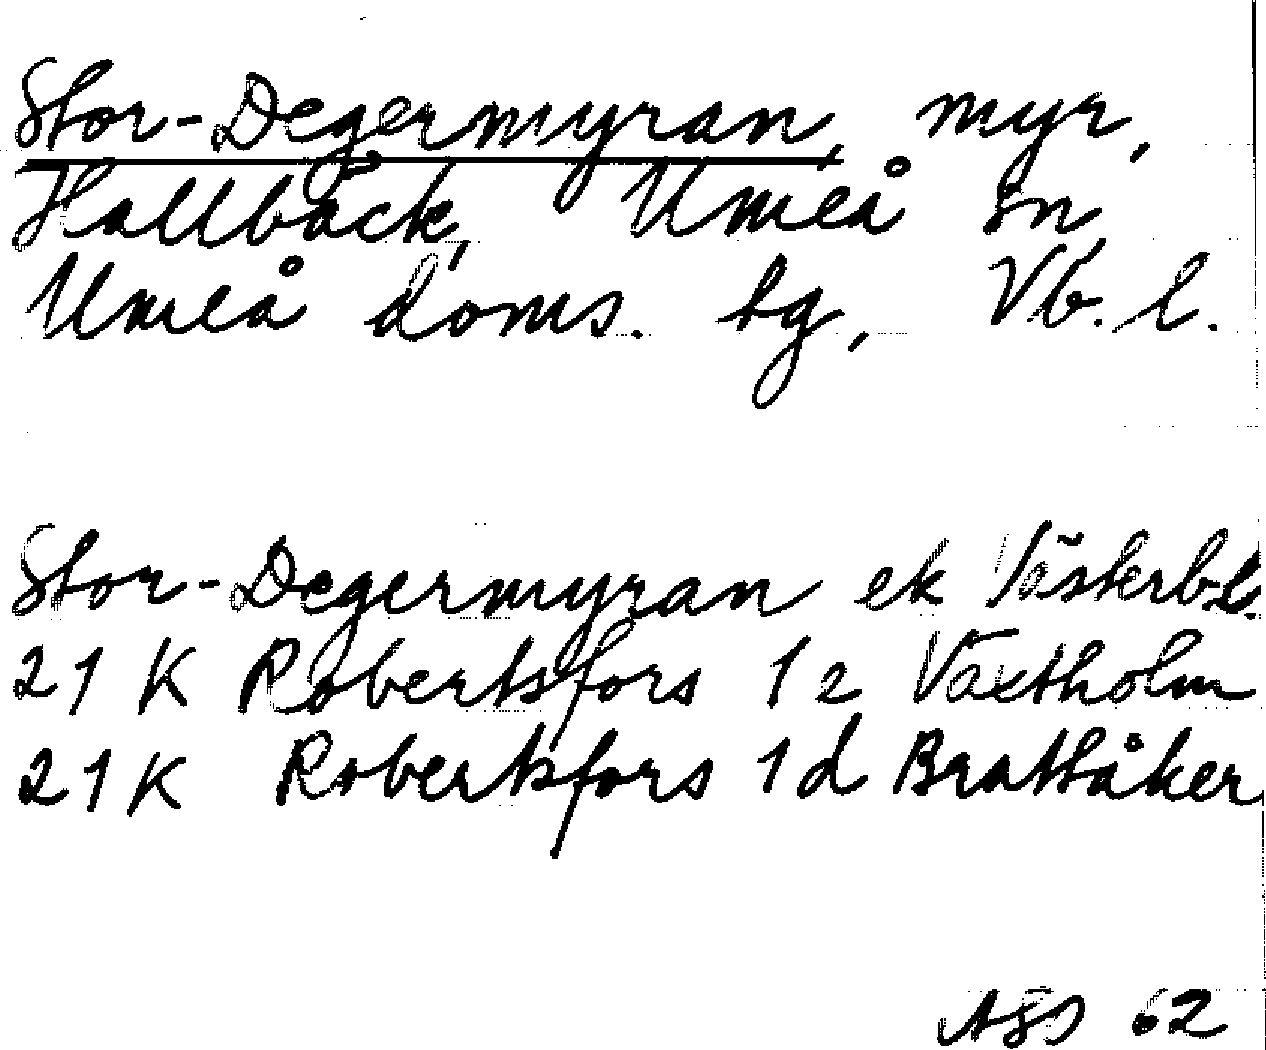 Stor-Degermyran, myr,
Hallbäck, Umeå sn,
Umeå doms. tg, Vb. l.
Stor-Degermyran ek Västerb.l.
21 K Robertsfors 1 e Växtholm
21 K Robertsfors 1 d Brattåker
62